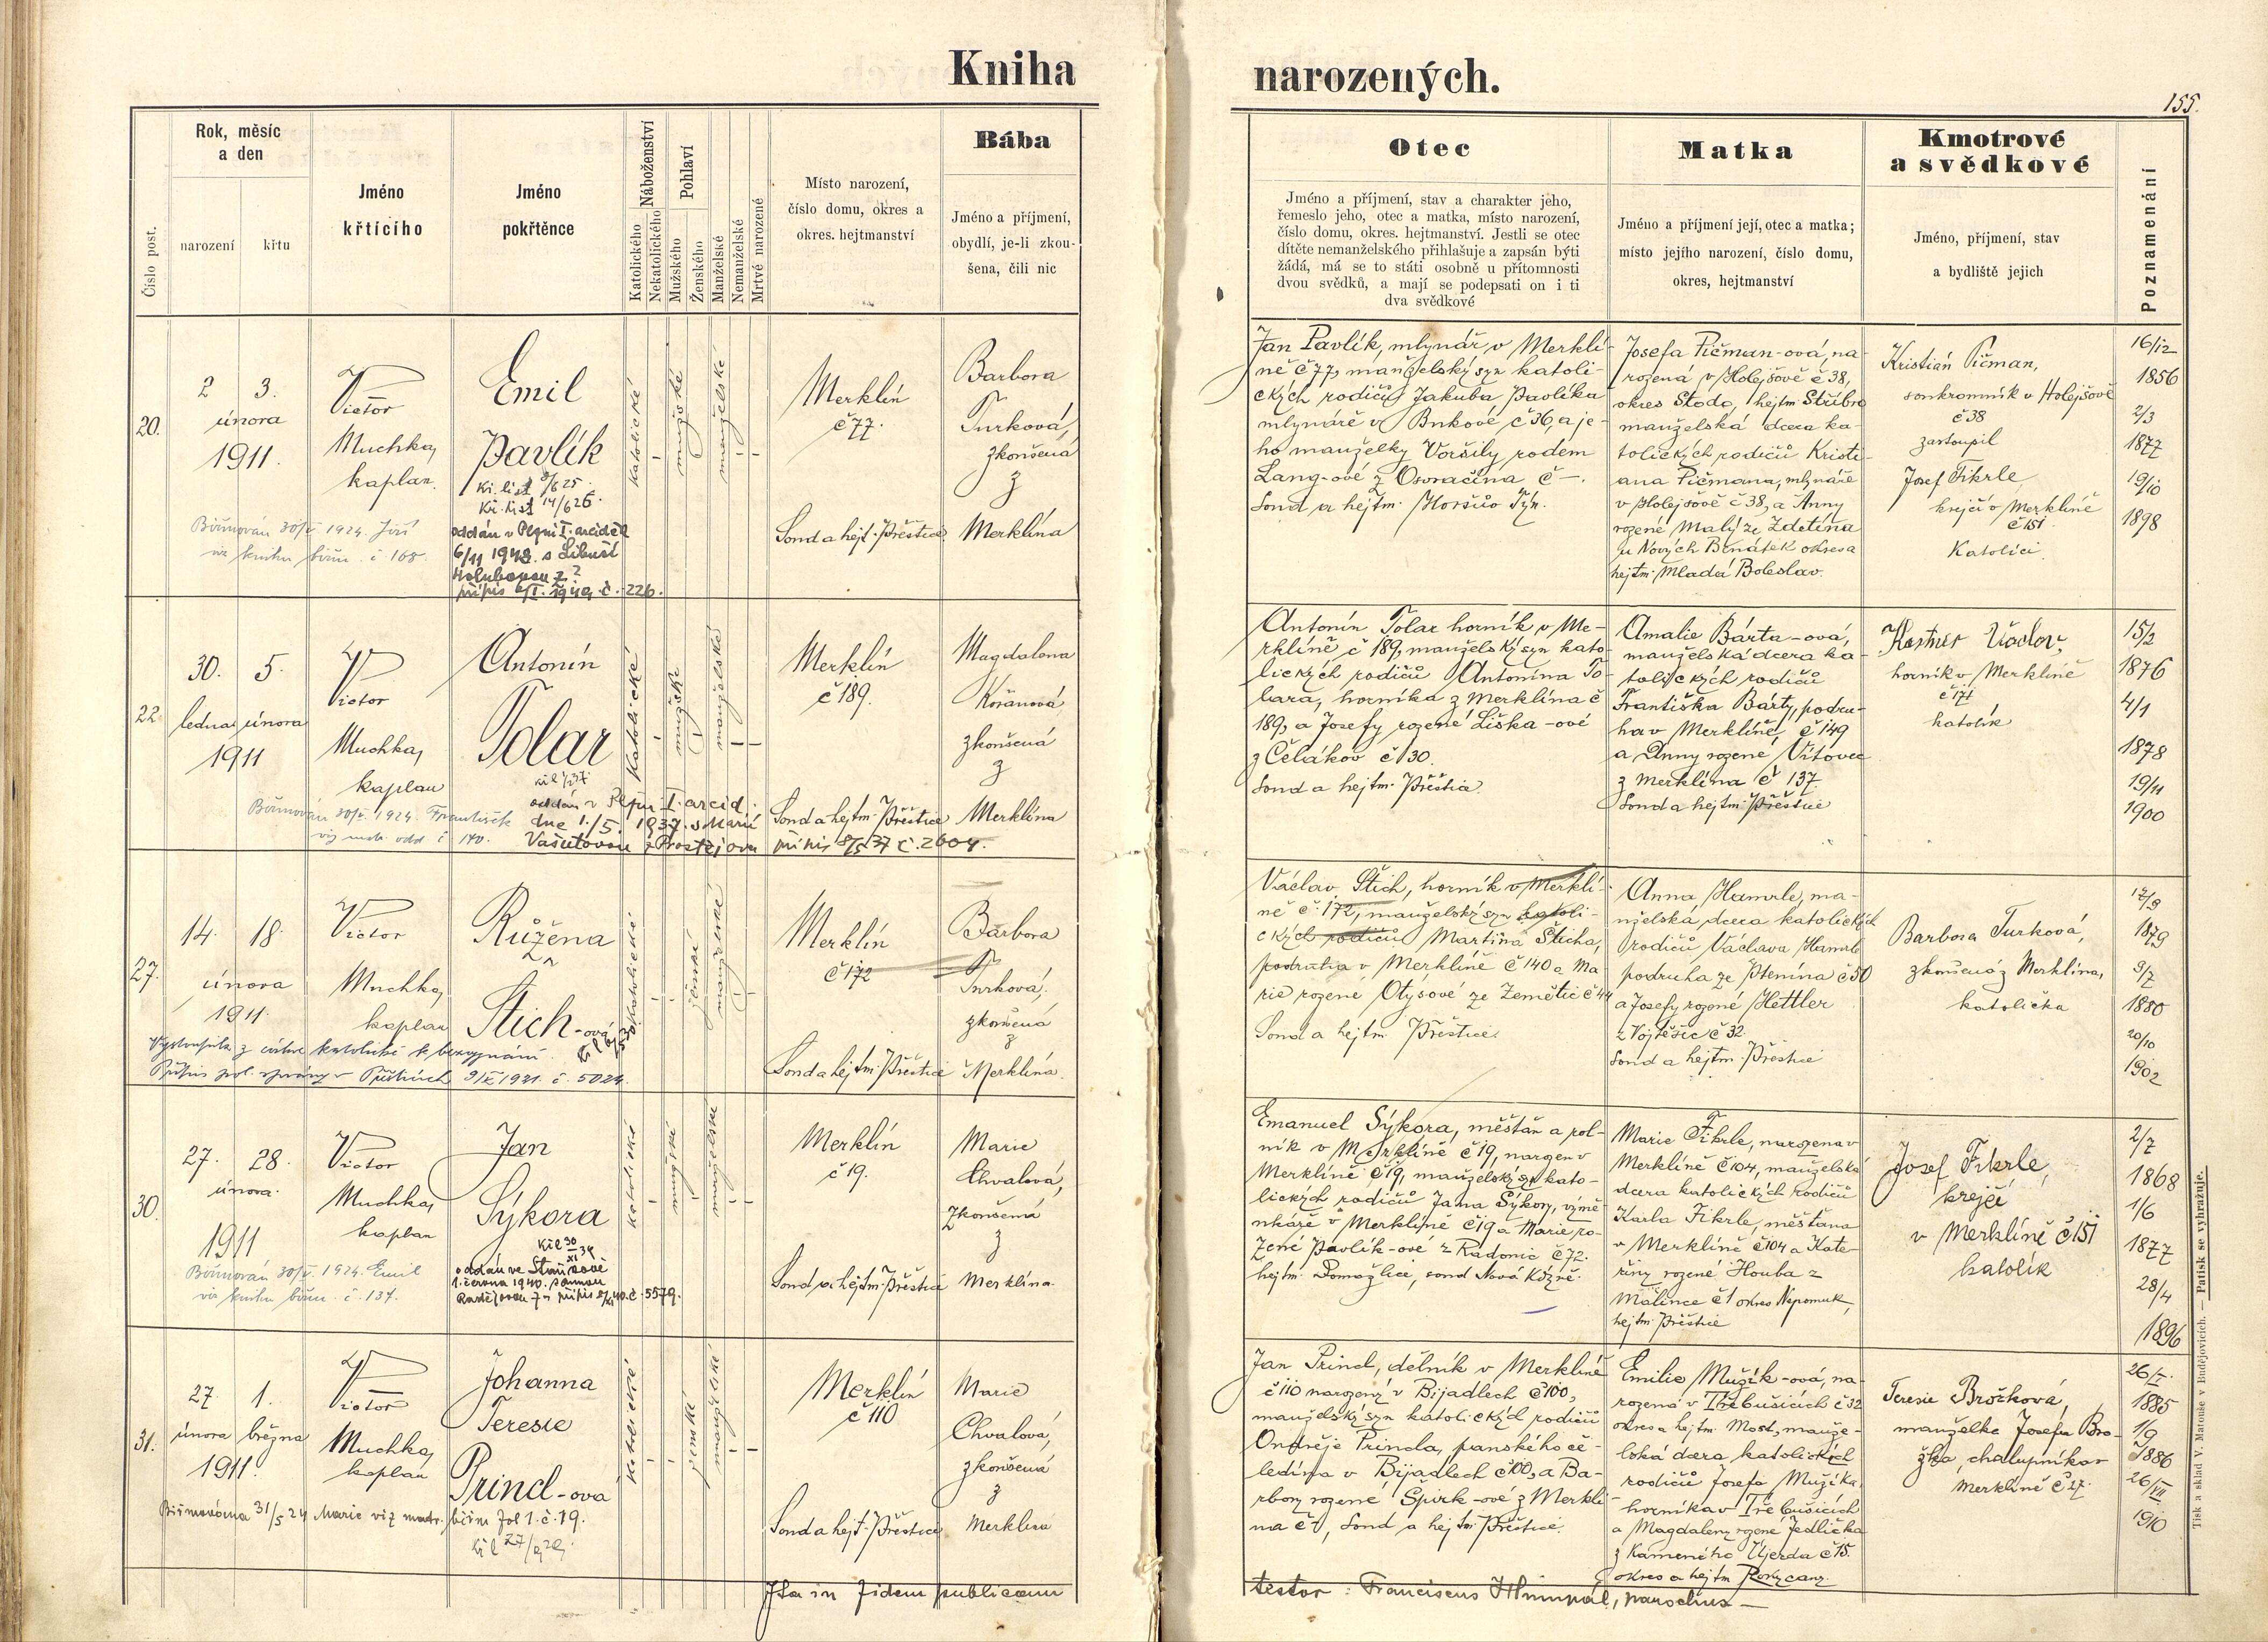 Kniha
narozených.
155.
Číslo post.
Rok, měsíc
a den
narození
křtu
Jméno
křtícího
Jméno
pokřtěnce
Náboženství
Katolického
Nekatolického
Pohlaví
Mužského
Ženského
Manželské
Nemanželské
Mrtvé narozené
Místo narození,
číslo domu, okres a
okres. hejtmanství
Bába
Jméno a příjmení,
obydlí, je-li zkou-
šena, čili nic
Otec
Jméno a příjmení, stav a charakter jeho,
řemeslo jeho, otec a matka, místo narození,
číslo domu, okres. hejtmanství. Jestli se otec
dítěte nemanželského přihlašuje a zapsán býti
žádá, má se to státi osobně u přítomnosti
dvou svědků, a mají se podepsati on i ti
dva svědkové
Matka
Jméno a příjmení její, otec a matka;
místo jejího narození, číslo domu,
okres, hejtmanství
Kmotrové
a svědkové
Jméno, příjmení, stav
a bydliště jejich
Poznamenání
20.
2 3.
února
1911.
Victor
Muchka,
kaplan.
Emil
Pavlík
Kř. list 14/626
Biřmován 30/V 1924. Jiří
viz knihu biřm. č 168.
oddán v Plzni I. arciděk
6/11 1948 s Libuší
Holubovou z ?
katolické
mužské
manželské
Merklín
č 77.
Soud a hejt. Přeštice
Barbora
Turková,
zkoušená
z
Merklína
Jan Pavlík, mlynář v Merklí-
ně č 77, manželský syn katoli-
ckých rodičů Jakuba Pavlíka
mlynáře v Bukové č 36, a je-
ho manželky Voršily rodem
Lang-ové z Osvračína č —.
Soud a hejtm. Horšův Týn.
Josefa Pičman-ová, na-
rozená v Holejšově č 38,
okres Stodo, hejtm. Stříbro
manželská dcera ka-
tolických rodičů Kristi-
ana Pičmana, mlynáře
v Holejšově č 38, a Anny
rozené Malý ze Zdetína
u Nových Benátek okres a
hejtm. Mladá Boleslav.
Kristián Pičman,
soukromník v Holejšově
č 38
zastoupil
Josef Fikrle
krejčí v Merklíně
č 151
Katolíci.
16/12
1856
2/3
1877
19/10
1898
22.
30. 5.
ledna února
1911
Victor
Muchka,
kaplan
Antonín
Tolar
Biřmován 30/V. 1924. František
oddán v Plzni I. arcid.
dne 1./5. 1937. s Marií
Vašutovou z Prostějova
Katolické
mužské
manželské
Merklín
č 189.
Soud a hejtm. Přeštice
Magdalena
Kořánová
zkoušená
z
Merklína
Antonín Tolar horník v Me-
rklíně č 189, manželský syn kato-
lických rodičů Antonína To-
lara, horníka z Merklína č
189, a Josefy rozené Liška-ové
z Čelákov č 30.
Soud a hejtm. Přeštice.
Amalie Bárta-ová,
manželská dcera ka-
tolických rodičů
Františka Bárty, podru-
ha v Merklíně, č 149
a Anny rozené Vítovec
z Merklína č 137.
Soud a hejtm. Přeštice
Kestner Václav,
horník v Merklíně
č 171
katolík
15/2
1876
4/1
1878
19/11
1900
27.
14. 18.
února
1911.
Victor
Muchka,
kaplan
Růžena
Štich-ová
Vystoupila z církve katolické k bezvyznání.
Přípis pol. správy v Přešticích 9/X 1921. č. 5024.
Katolické
ženské
manželské
Merklín
č 172
Soud a hejtm. Přeštice
Barbora
Turková,
zkoušená
z
Merklína.
Václav Štich, horník v Merklí-
ně č. 172, manželský syn katoli-
ckých rodičů Martina Šticha,
podruha v Merklíně č 140 a Ma
rie rozené Otýsové ze Zemětic č 44
Soud a hejtm. Přeštice.
Anna Hamrle, ma-
nželská dcera katolických
rodičů Václava Hamrle
podruha ze Ptenína č 50
a Josefy rozené Hettler
z Vojtěšic č 32.
Soud a hejtm. Přeštice
Barbora Turková,
zkoušená z Merklína,
katolička
17/9
1879
9/7
1880
20/10
1902
30.
27. 28.
února.
1911
Victor
Muchka,
kaplan
Jan
Sýkora
Biřmován 30/V. 1924. Emil
viz knihu biřm. č. 137.
Katolické
mužské
manželské
Merklín
č 19.
Soud a hejtm. Přeštice
Marie
Chvalová,
zkoušená
z
Merklína.
Emanuel Sýkora, měšťan a rol-
ník v Merklíně č 19, narozen v
Merklíně č 19, manželský syn kato-
lických rodičů Jana Sýkory, výmě-
nkáře v Merklíně č 19 a Marie, ro-
zené Pavlík-ové z Radonic č 72.
hejtm. Domažlice, soud Nová Kdyně.
Marie Fikrle, narozena v
Merklíně č 104, manželská
dcera katolických rodičů
Karla Fikrle, měšťana
v Merklíně č 104 a Kate-
řiny rozené Houba z
Målince č 1 okres Nepomuk,
hejtm. Přeštice
Josef Fikrle,
krejčí
v Merklíně č 151
katolík
2/7
1868
1/6
1877
28/4
1896
31.
27. 1.
února března
1911.
Victor
Muchka,
kaplan
Johanna
Teresie
Princl-ová
Biřmována 31/5 24 Marie viz matr. biřm fol 1. č. 19.
Katolické
ženské
manželské
Merklín
č 110
Soud a hejt. Přeštice
Marie
Chvalová,
zkoušená
z
Merklína
Jan Princl, dělník v Merklíně
č 110 narozený v Bijadlech č 100,
manželský syn katolických rodičů
Ondřeje Princla, panského če-
ledína v Bijadlech č 100, a Ba-
rbory rozené Spirk-ové z Merklí-
na č 1, Soud a hejtm. Přeštice.
Emilie Mužík-ová, na-
rozená v Třebušicích č 32
okres a hejtm. Most, manže-
lská dcera katolických
rodičů Josefa Mužíka,
horníka v Třebušicích
a Magdaleny rozené Jedlička
z Kameného Újezda č 15.
okres a hejtm Rokycany.
Teresie Brožková,
manželka Josefa Bro-
žka, chalupníka v
Merklíně č 27.
26/I.
1885
1/9
1886
26/VII
1910
Ita in fidem publicam
testor : Franciscus , parochus —
Tisk a sklad V. Matouše v Budějovicích. — Patisk se vyhražuje.